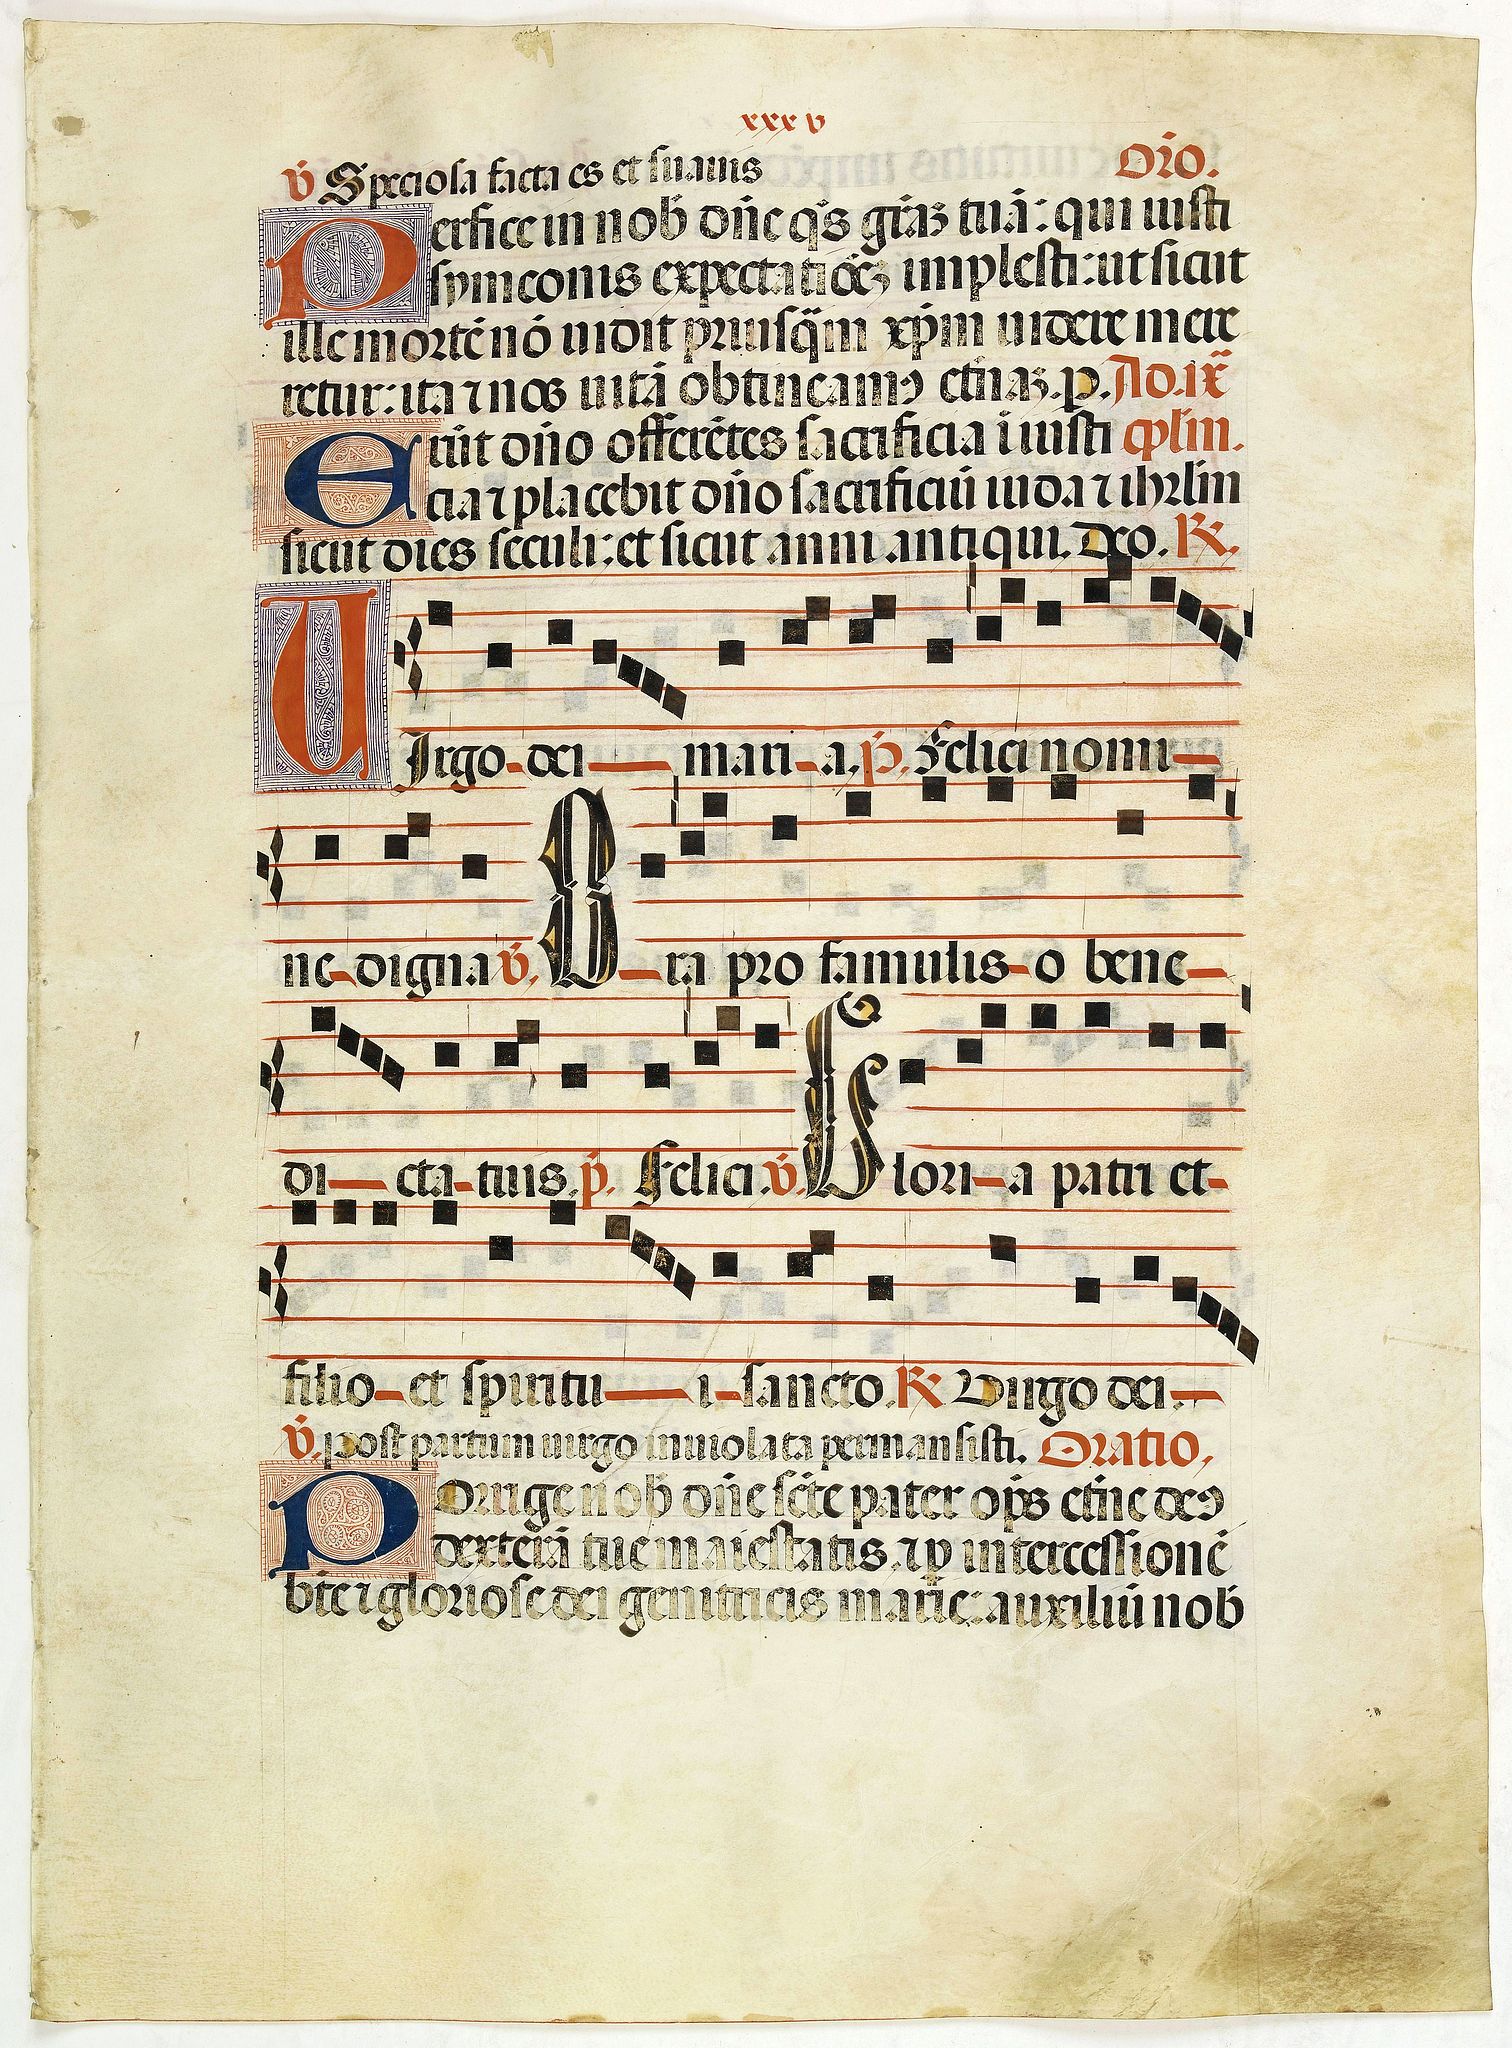 xxxv
v̄ Speciosa facta es et suauis Orō.
Perfice in nob̄ dn̄e q̄s grāꝫ tuā: qui iusti
symeonis expectatiōeꝫ implesti: ut sicut
ille mortē nō uidit priusq̄m xp̄m uidere mere
retur: ita ⁊ nos uitā obtineamꝰ etn̄aꝫ. p. Ad. ix̄
Erūt dn̄o offerētes sacrificia i iusti cp̄lm.
cia ⁊ placebit dn̄o sacrificiū iuda ⁊ ihrlm
sicut dies seculi: et sicut anni antiqui. Deo. ℟.
VIrgo dei mari a. p̄. Felici nomi
ne digna v̄. O ra pro famulis o bene
di cta tuis. p̄. Felici. v̄. Glori a patri et
filio et spiritu i sancto. ℟ Virgo dei.
v̄. post partum uirgo inuiolata permansisti. Oratio.
POrrige nob̄ dn̄e sc̄te pater ōps etn̄e deꝰ
dexterā tue maiestatis. ⁊ ꝑ intercessionē
bt̄e ⁊ gloriose dei genitricis marie: auxiliū nob̄